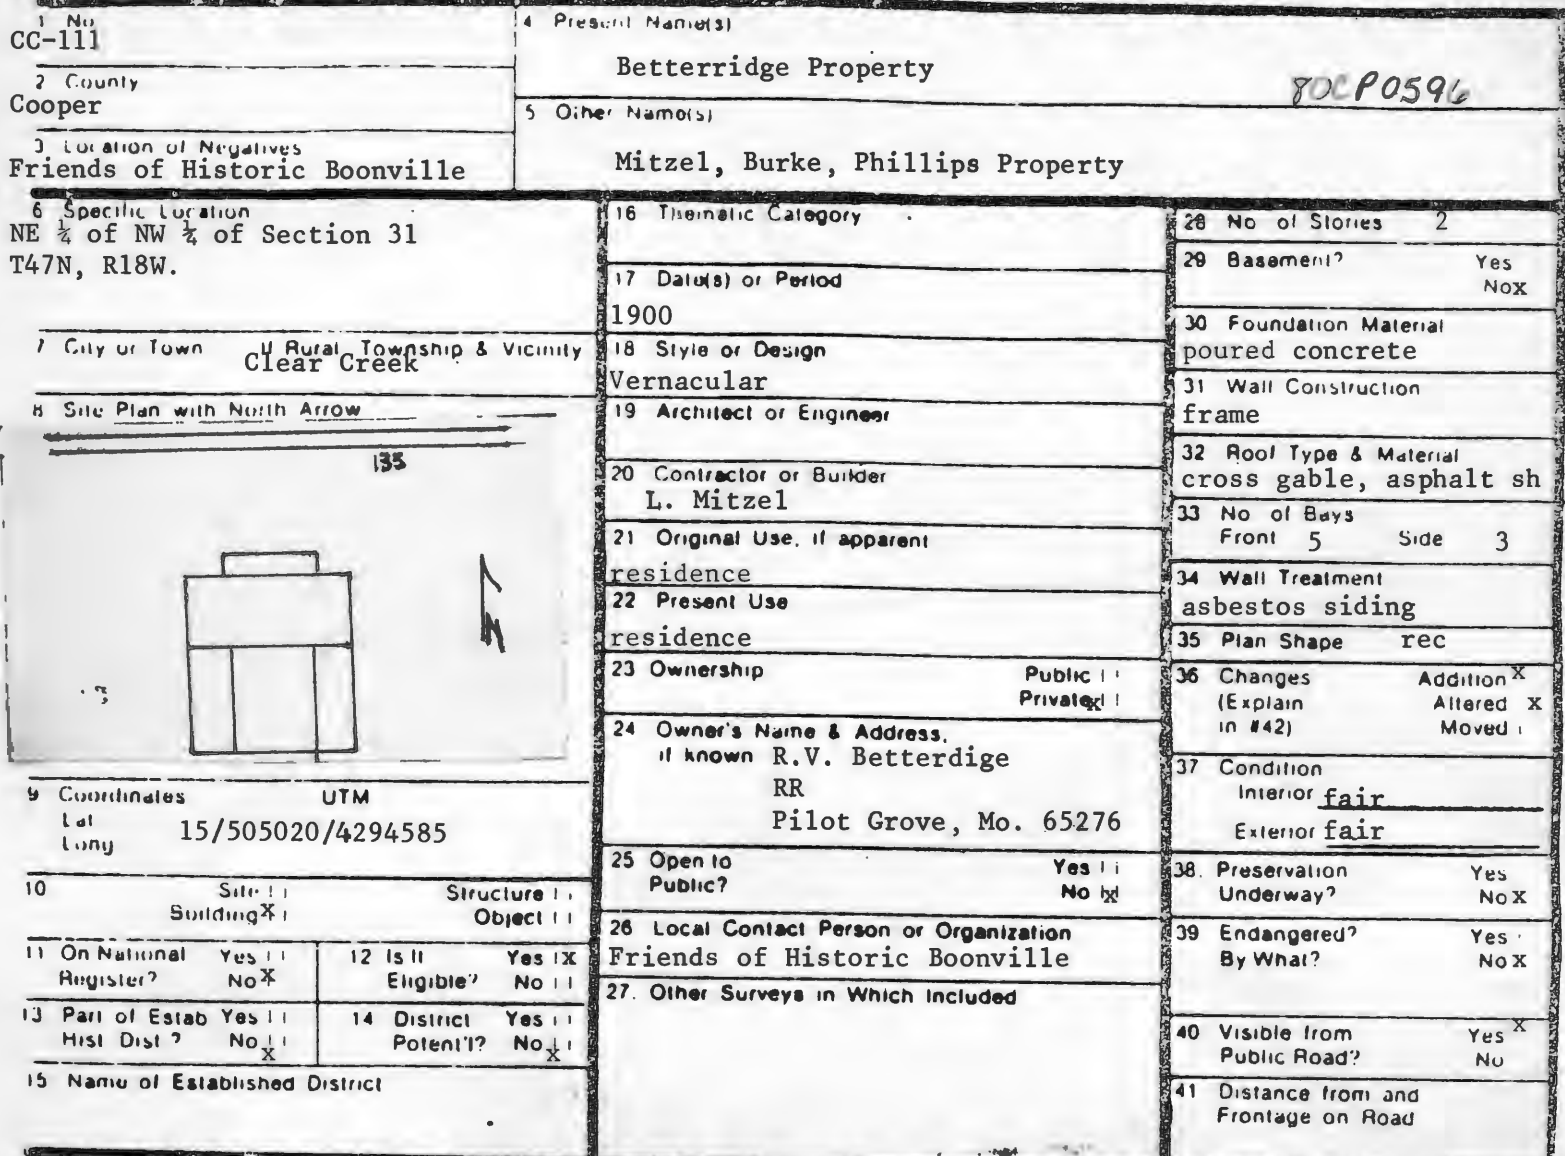 1 No
CC-111
2 County
Cooper
3 Location of Negatives
Friends of Historic Boonville
4 Present Name(s)
Betterridge Property
80CP0596
5 Other Name(s)
Mitzel, Burke, Phillips Property
6 Specific Location
NE ¼ of NW ¼ of Section 31
T47N, R18W.
7 City or Town If Rural, Township & Vicinity
Clear Creek
8 Site Plan with North Arrow
135
N
9 Coordinates UTM
Lat
Long
15/505020/4294585
10 Site Structure
Building X Object
11 On National Yes
Register? No X
12 Is It Yes X
Eligible? No
13 Part of Estab Yes
Hist Dist? No X
14 District Yes
Potent'l? No X
15 Name of Established District
16 Thematic Category
17 Date(s) or Period
1900
18 Style or Design
Vernacular
19 Architect or Engineer
20 Contractor or Builder
L. Mitzel
21 Original Use, if apparent
residence
22 Present Use
residence
23 Ownership Public
Private X
24 Owner's Name & Address,
if known R.V. Betterdige
RR
Pilot Grove, Mo. 65276
25 Open to Yes
Public? No X
26 Local Contact Person or Organization
Friends of Historic Boonville
27. Other Surveys in Which Included
28 No of Stories 2
29 Basement? Yes
No X
30 Foundation Material
poured concrete
31 Wall Construction
frame
32 Roof Type & Material
cross gable, asphalt sh
33 No of Bays
Front 5 Side 3
34 Wall Treatment
asbestos siding
35 Plan Shape rec
36 Changes Addition X
(Explain Altered X
in #42) Moved
37 Condition
Interior fair
Exterior fair
38. Preservation Yes
Underway? No X
39 Endangered? Yes
By What? No X
40 Visible from Yes X
Public Road? No
41 Distance from and
Frontage on Road